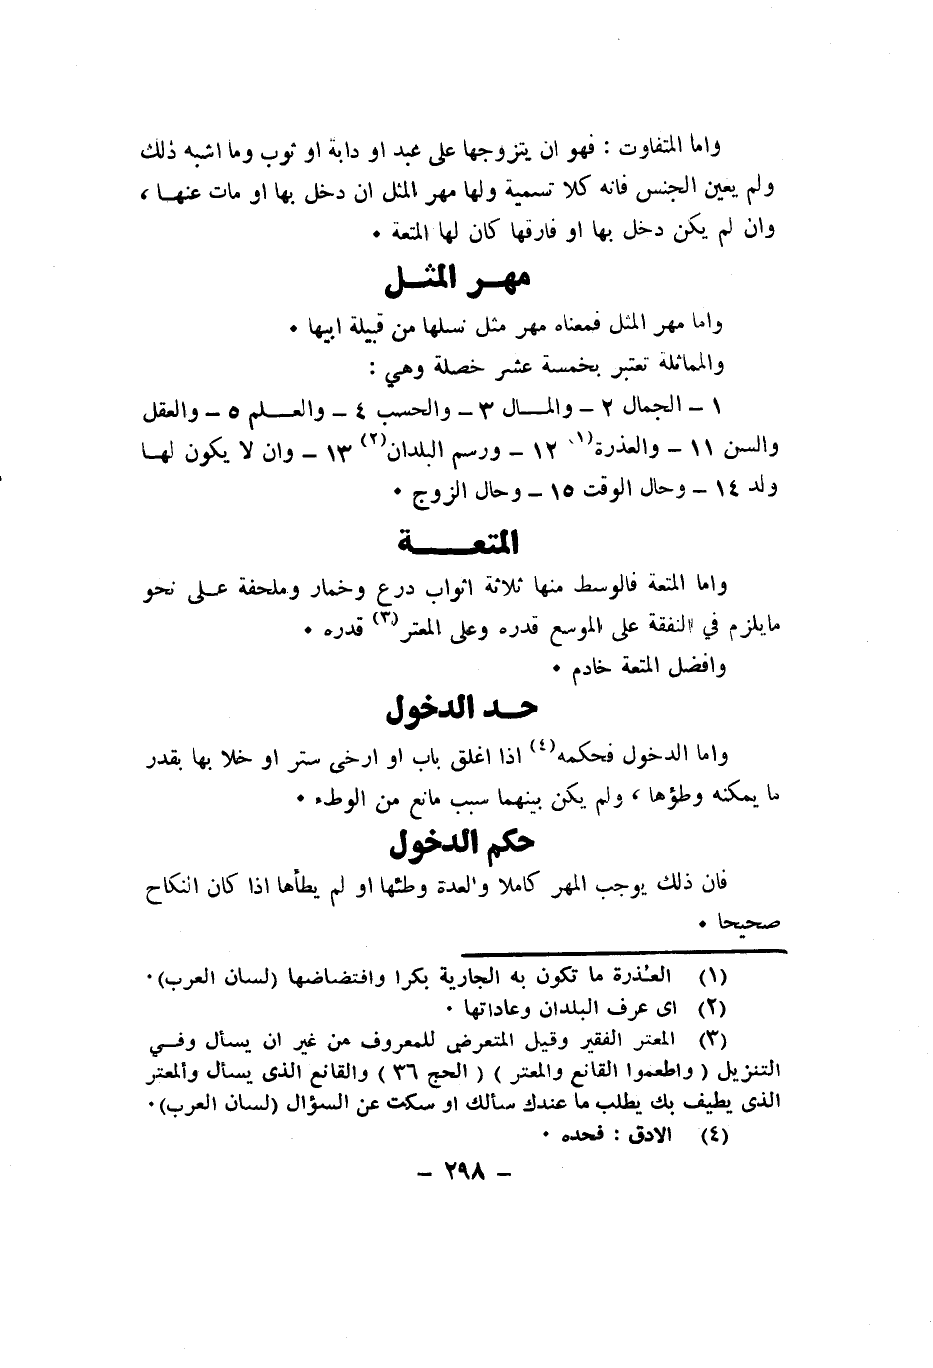 واما المتفاوت : فهو ان يتزوجها على عبد او دابة او ثوب وما اشبه ذلك
ولم يعين الجنس فانه كلا تسمية ولها مهر المثل ان دخل بها او مات عنهـا ،
وان لم يكن دخل بها او فارقها كان لها المتعة ٠
مهــر المثــل
واما مهر المثل فمعناه مهر مثل نسلها من قبيلة ابيها ٠
والمماثلة تعتبر بخمسة عشر خصلة وهي :
١ ــ الجمال ٢ ــ والمــال ٣ ــ والحسب ٤ ــ والعــلم ٥ ــ والعقل
والسن ١١ ــ والعذرة(١) ١٢ ــ ورسم البلدان(٢) ١٣ ــ وان لا يكون لهـا
ولد ١٤ ــ وحال الوقت ١٥ ــ وحال الزوج ٠
المتعـــــة
واما المتعة فالوسط منها ثلاثة اثواب درع وخمار وملحفة عـلى نحو
مايلزم في النفقة على الموسع قدره وعلى المعتر(٣) قدره ٠
وافضل المتعة خادم ٠
حــد الدخول
واما الدخول فحكمه(٤) اذا اغلق باب او ارخى ستر او خلا بها بقدر
ما يمكنه وطؤها ، ولم يكن بينهما سبب مانع من الوطء ٠
حكم الدخول
فان ذلك يوجب المهر كاملا والعدة وطئها او لم يطأها اذا كان النكاح
صحيحا ٠
(١) العـُذرة ما تكون به الجارية بكرا وافتضاضها (لسان العرب)٠
(٢) اى عرف البلدان وعاداتها ٠
(٣) المعتر الفقير وقيل المتعرض للمعروف من غير ان يسأل وفـي
التنزيل ( واطعموا القانع والمعتر ) ( الحج ٣٦ ) والقانع الذى يسأل والمعتر
الذى يطيف بك يطلب ما عندك سألك او سكت عن السؤال (لسان العرب)٠
(٤) الادق : فحده ٠
ــ ٢٩٨ ــ